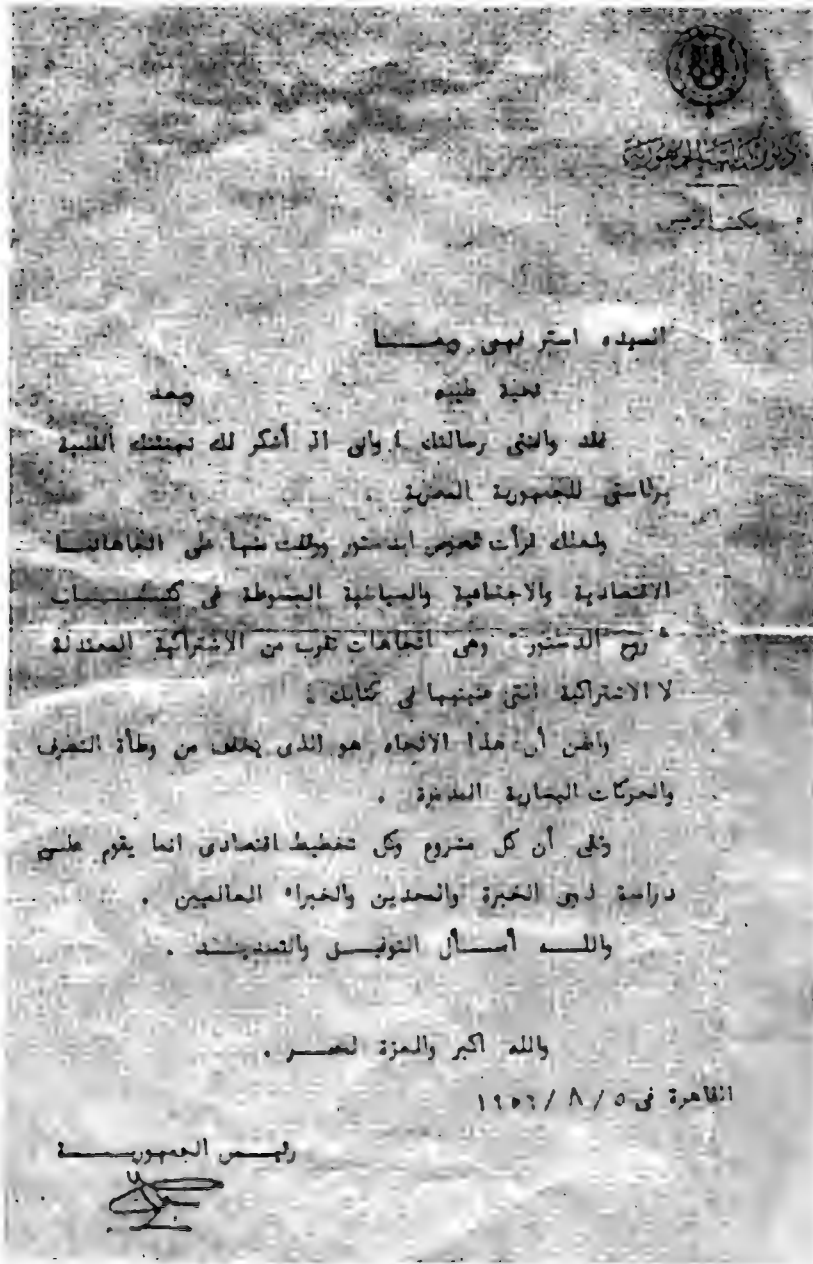 ديوان رئاسة الجمهورية
مكتب الرئيس
السيده استر فهمى ويصــــا
تحية طيبه وبعد
فقد وافتنى رسالتك وانى اذ أشكر لك تهنئتك القلبية
برئاستى للجمهورية المصرية .
ولعلك قرأت نصوص الدستور ووقفت منها على اتجاهاتنـــا
الاقتصادية والاجتماعية والسياسية المبسوطة فى
" روح الدستور " وهى اتجاهات تقرب من الاشتراكية المعتدلة
لا الاشتراكية التى عنيتها فى كتابك .
وأظن أن هذا الاتجاه هو الذى يخفف من وطأة التطرف
والحركات اليسارية المدمرة .
وثقى أن كل مشروع وكل تخطيط اقتصادى انما يقوم علـى
دراسة ذوى الخبرة والمحدين والخبراء العالميين .
واللـــه أســـأل التوفيـــق والتسديـــد .
والله اكبر والعزة لمصـــر .
القاهرة فى ٥ / ٨ / ١٩٥٦
رئيـــس الجمهوريـــــة